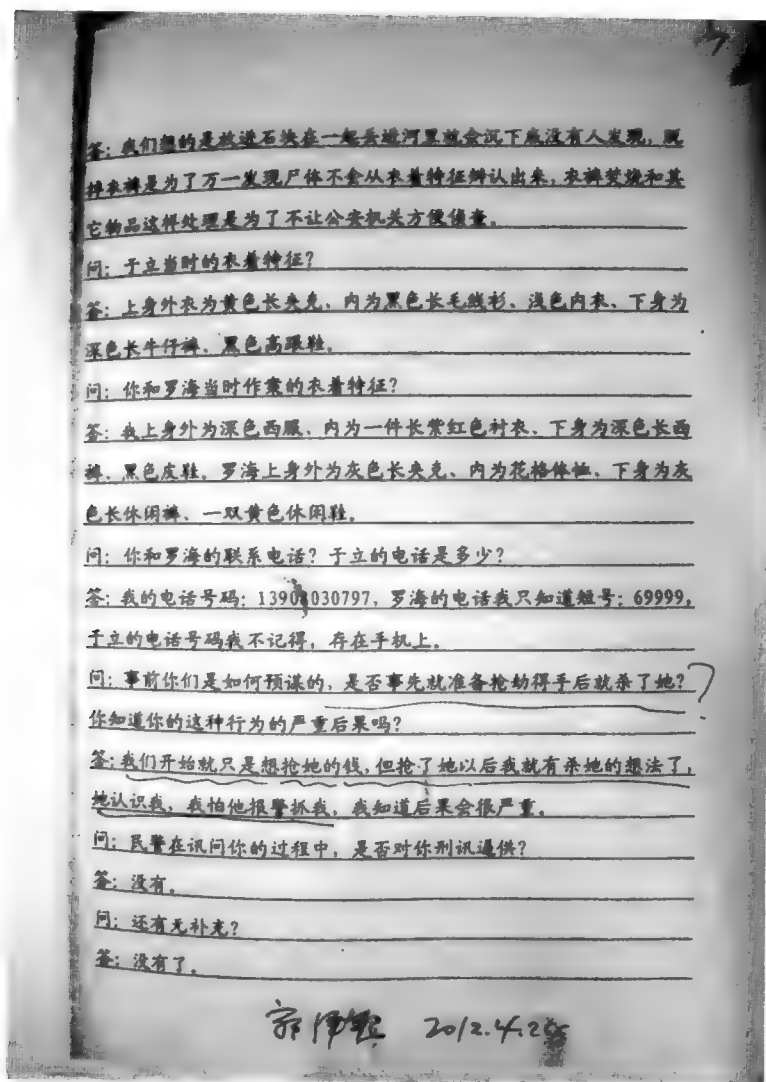 答：我们想的是放进石块在一起丢进河里就会沉下底没有人发现，脱
掉衣裤是为了万一发现尸体不会从衣着特征辨认出来，衣裤焚烧和其
它物品这样处理是为了不让公安机关方便侦查。
问：于立当时的衣着特征？
答：上身外衣为黄色长夹克、内为黑色长毛线衫、浅色内衣、下身为
深色长牛仔裤、黑色高跟鞋。
问：你和罗海当时作案的衣着特征？
答：我上身外为深色西服、内为一件长紫红色衬衣、下身为深色长西
裤、黑色皮鞋，罗海上身外为灰色长夹克、内为花格体恤、下身为灰
色长休闲裤、一双黄色休闲鞋。
问：你和罗海的联系电话？于立的电话是多少？
答：我的电话号码：1390 030797，罗海的电话我只知道短号：69999，
于立的电话号码我不记得，存在手机上。
问：事前你们是如何预谋的，是否事先就准备抢劫得手后就杀了她？?
你知道你的这种行为的严重后果吗？
答：我们开始就只是想抢她的钱，但抢了她以后我就有杀她的想法了，
她认识我，我怕他报警抓我，我知道后果会很严重。
问：民警在讯问你的过程中，是否对你刑讯逼供？
答：没有。
问：还有无补充？
答：没有了。
2012.4.2